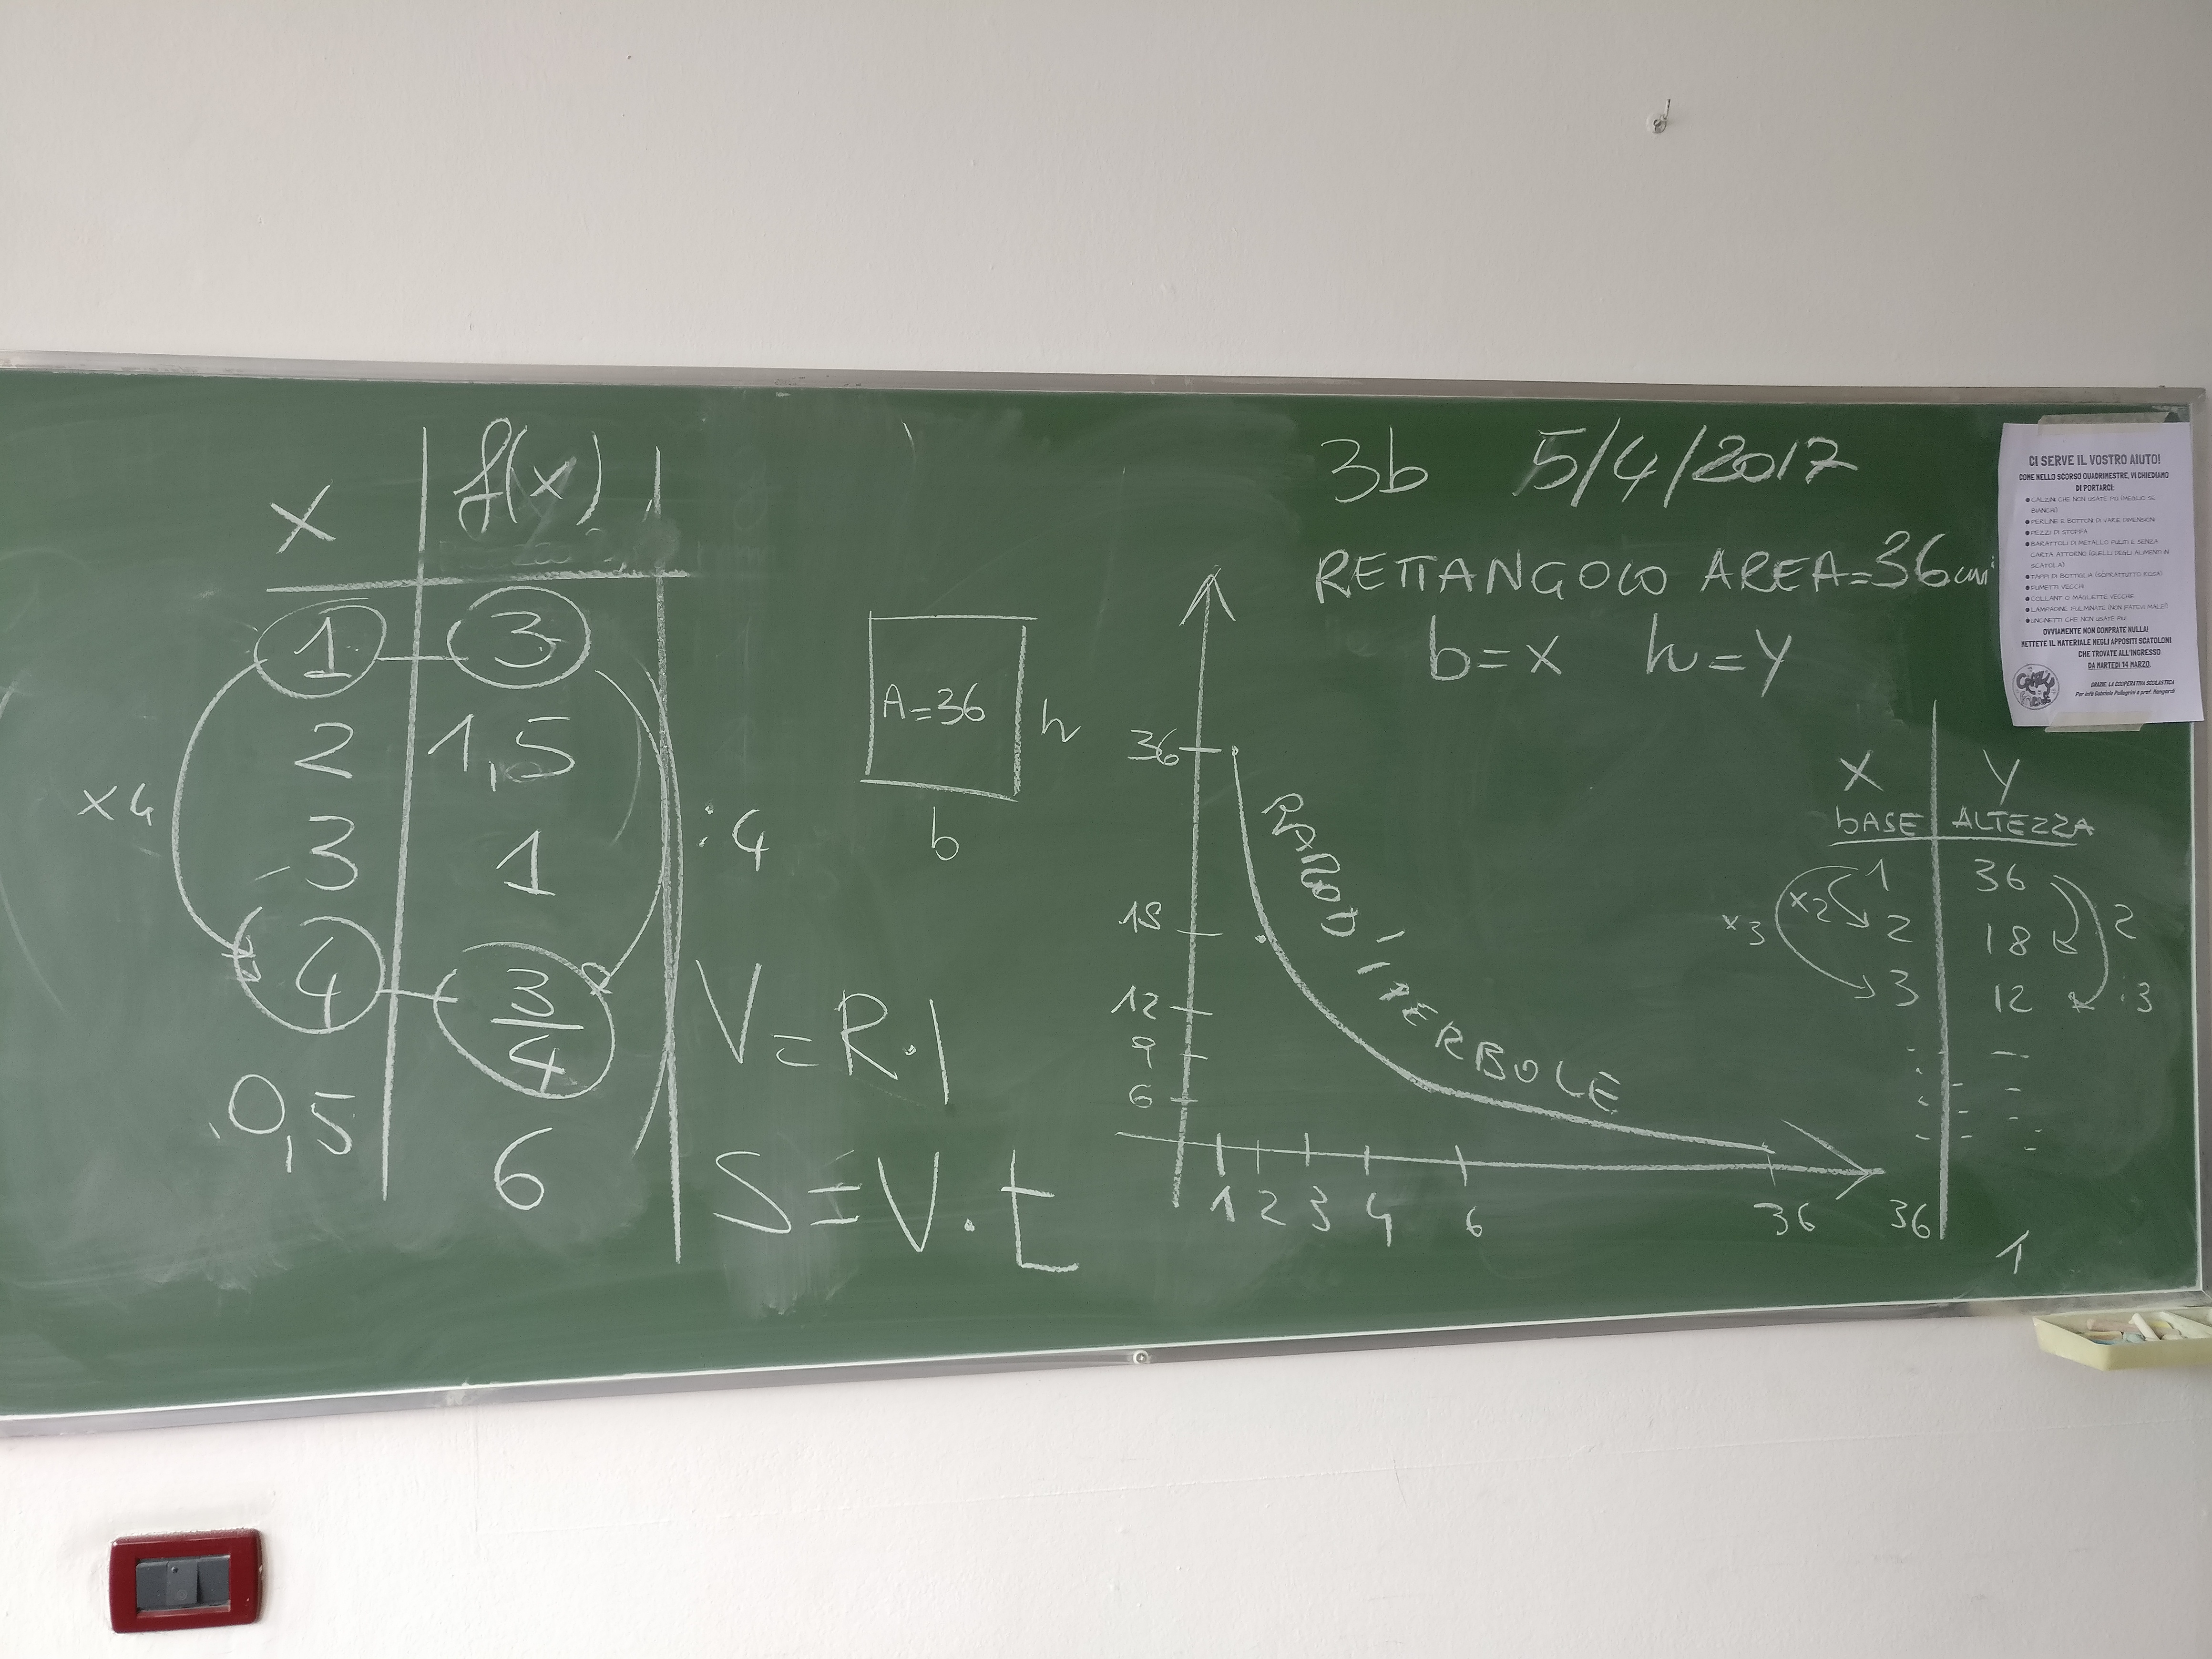 x f(x)
1 3
2 1,5
3 1
4 3/4
0,5 6
x4
:4
A=36
h
b
V=R·I
S=V·t
3b 5/4/2017
RETTANGOLO AREA=36cm²
b=x h=y
36
18
12
9
6
1 2 3 4 6 36
RAMO D'IPERBOLE
x y
bASE ALTEZZA
1 36
2 18
3 12
36 1
x2
x3
2
:3
CI SERVE IL VOSTRO AIUTO!
COME NELLO SCORSO QUADRIMESTRE, VI CHIEDIAMO
DI PORTARCI:
● CALZINI CHE NON USATE PIÙ (MEGLIO SE
BIANCHI)
● PERLINE E BOTTONI DI VARIE DIMENSIONI
● PEZZI DI STOFFA
● BARATTOLI DI METALLO PULITI E SENZA
CARTA ATTORNO (QUELLI DEGLI ALIMENTI IN
SCATOLA)
● TAPPI DI BOTTIGLIA (SOPRATTUTTO ROSA)
● FUMETTI VECCHI
● COLLANT O MAGLIETTE VECCHIE
● LAMPADINE FULMINATE (NON FATEVI MALE!)
● UNCINETTI CHE NON USATE PIÙ
OVVIAMENTE NON COMPRATE NULLA!
METTETE IL MATERIALE NEGLI APPOSITI SCATOLONI
CHE TROVATE ALL'INGRESSO
DA MARTEDÌ 14 MARZO.
GRAZIE, LA COOPERATIVA SCOLASTICA
Per info Gabriele Pellegrini e prof. Mangiardi